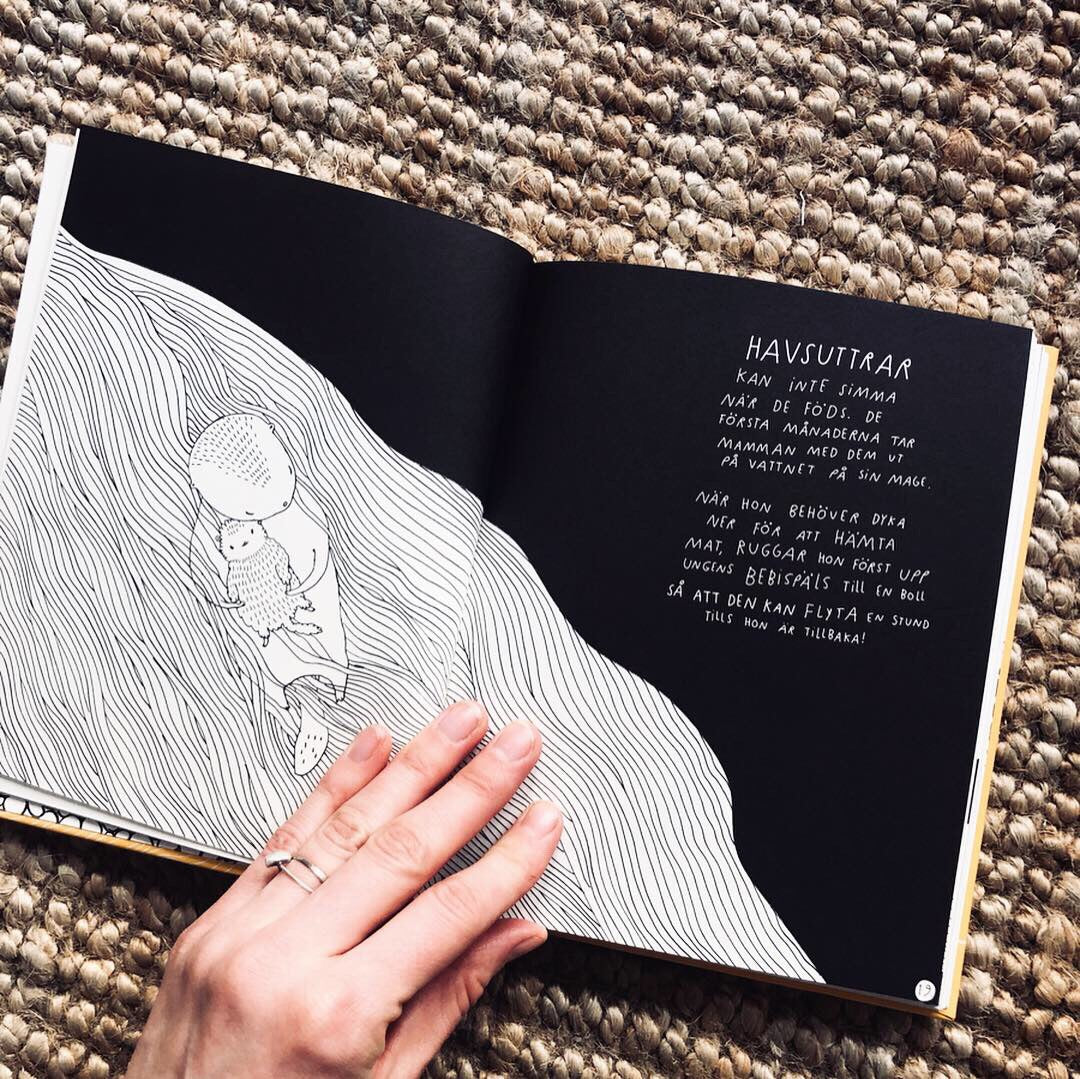 HAVSUTTRAR
KAN INTE SIMMA
NÄR DE FÖDS. DE
FÖRSTA MÅNADERNA TAR
MAMMAN MED DEM UT
PÅ VATTNET PÅ SIN MAGE.
NÄR HON BEHÖVER DYKA
NER FÖR ATT HÄMTA
MAT, RUGGAR HON FÖRST UPP
UNGENS BEBISPÄLS TILL EN BOLL
SÅ ATT DEN KAN FLYTA EN STUND
TILLS HON ÄR TILLBAKA!
19